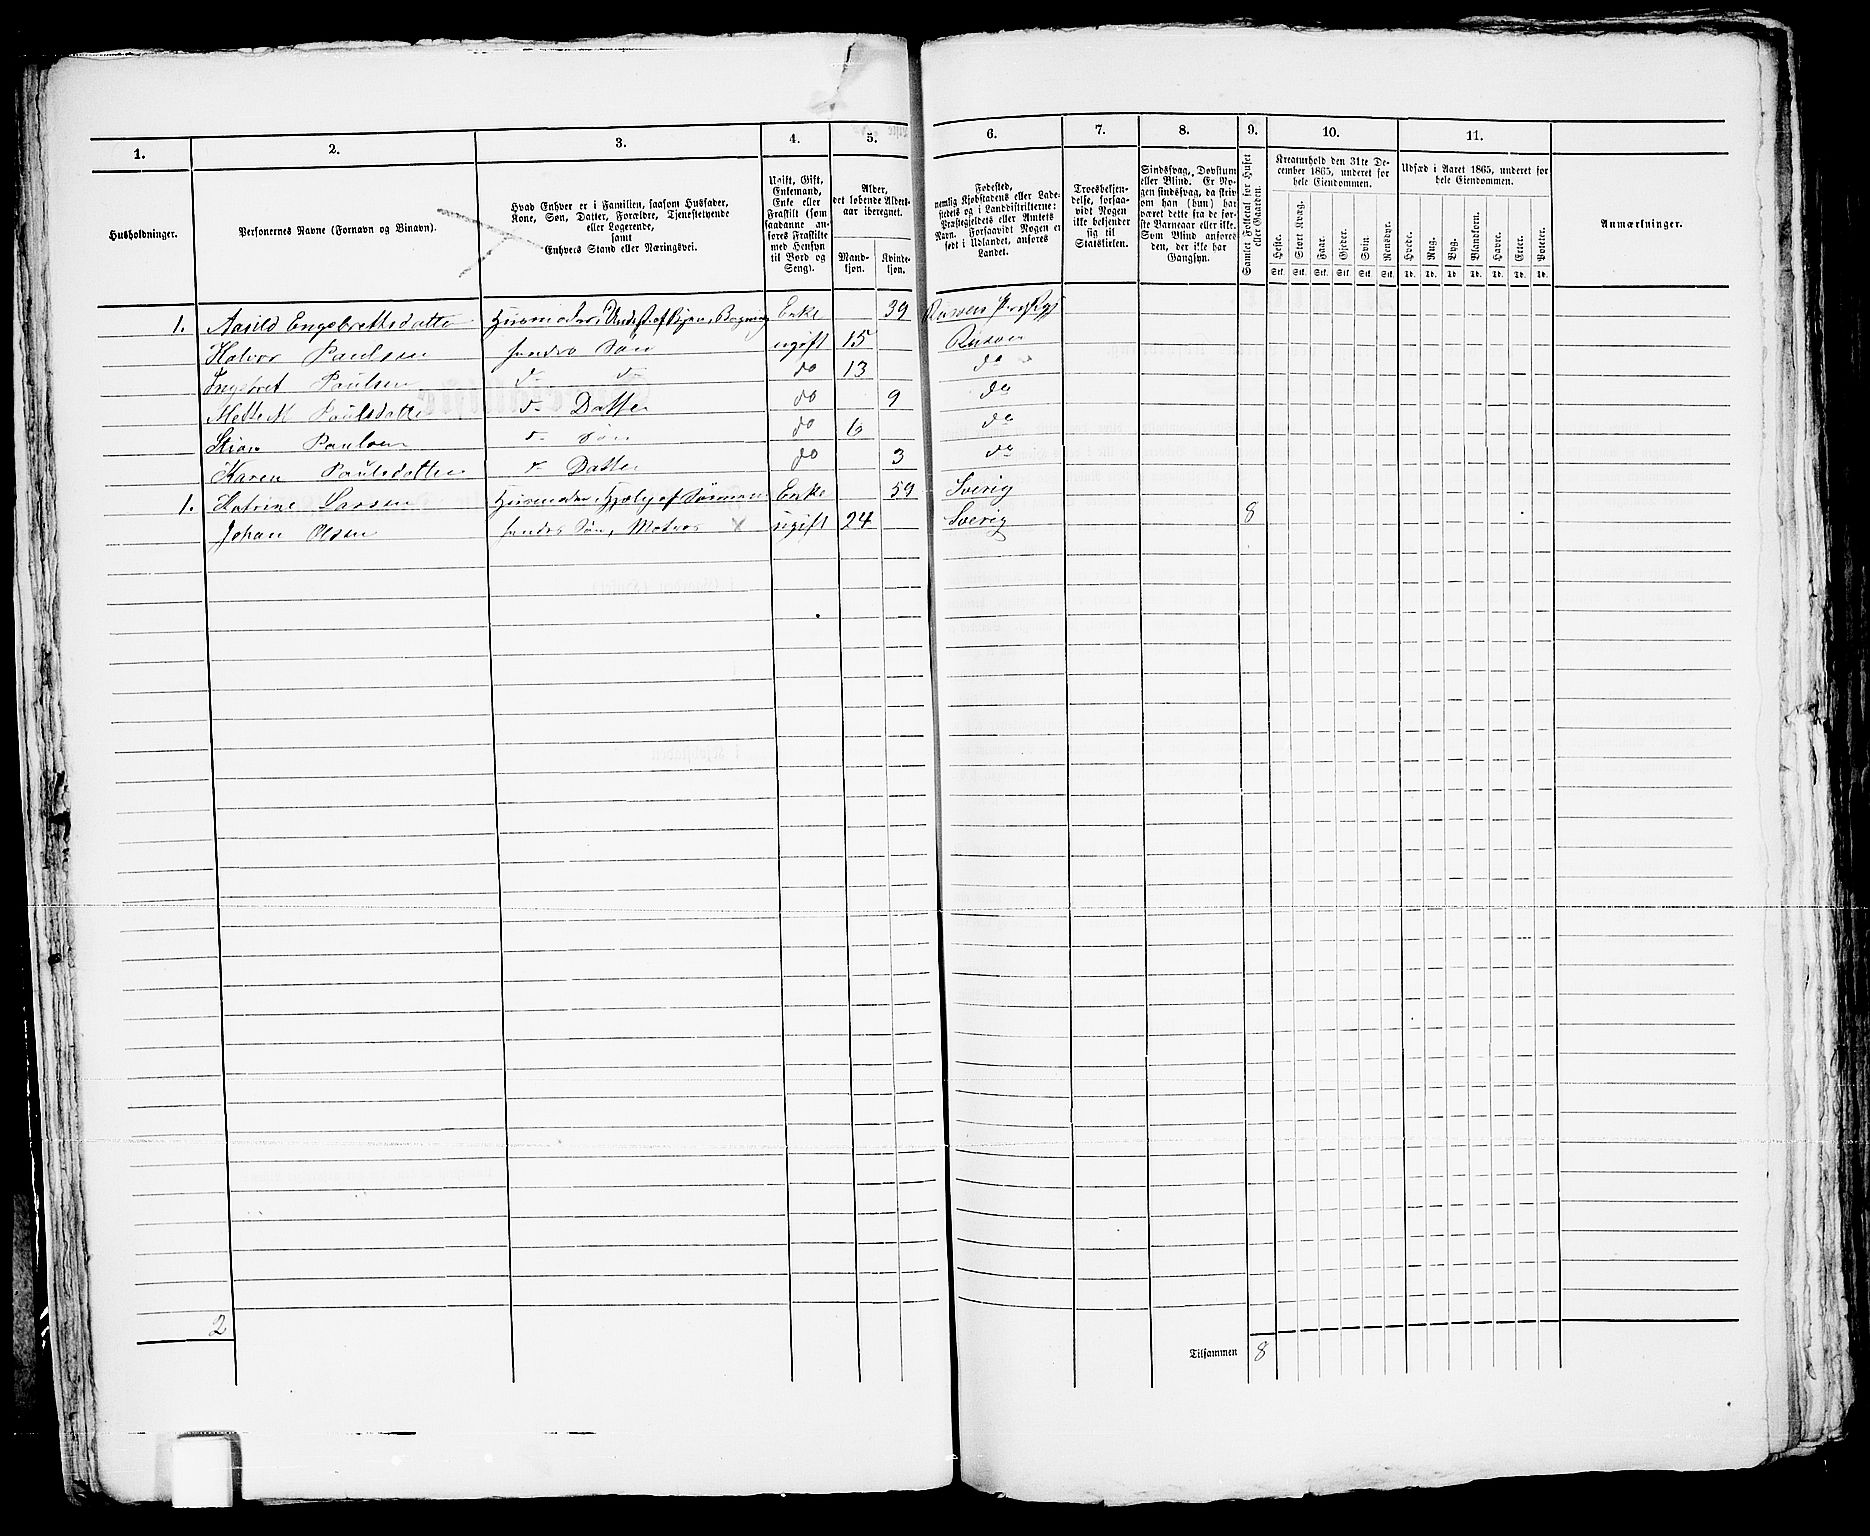 1. 2. 3. 4. 5. 6. 7. 8. 9. 10. 11.
Husholdninger.
Personernes Navne (Fornavn og Binavn).
Hvad Enhver er i Familien, saasom Husfader,
Kone, Søn, Datter, Forældre, Tjenestetyende
eller Logerende,
samt
Enhvers Stand eller Næringsvei.
Ugift, Gift,
Enkemand,
Enke eller
Fraskilt (som
saadanne an-
føres Fraskilte
med Hensyn
til Bord og
Seng).
Alder,
det løbende Alders-
aar iberegnet.
Mand-
kjøn.
Kvinde-
kjøn.
Fødested,
nemlig Kjøbstadens eller Lade-
stedets og i Landdistrikterne:
Præstegjeldets eller Amtets
Navn. Forsaavidt Nogen er
født i Udlandet, anføres
Landet.
Troesbekjen-
delse, forsaa-
vidt Nogen
ikke bekjender
sig til
Statskirken.
Sindssvag, Døvstum
eller Blind. Er No-
gen sindssvag, da skriv
om han (hun) har
været dette fra de før-
ste Barneaar eller ikke.
Som Blind anføres
den, der ikke har
Gangsyn.
Samlet Folketal for Huset
eller Gaarden.
Kreaturhold den 31te De-
cember 1865, underet for
hele Eiendommen.
Heste. Stort Kvæg. Faar. Gjeder. Svin Rensdyr.
Stk. Stk. Stk. Stk. Stk. Stk.
Udsæd i Aaret 1865, underet for
hele Eiendommen.
Hvede. Rug. Byg. Blandkorn. Havre. Erter. Poteter.
Td. Td. Td. Td. Td. Td. Td.
Anmærkninger.
1. Aasild Engebrettsdatter Huusmoder, Underst. af Enke 39
Halvor Paulsen hendes Søn ugift 15 Risøer
Ingebret Paulsen do do do 13 do
Paulsdatter do Datter do 9 do
Paulsen do Søn do 6 do
Karen Paulsdatter do Datter do 3 do
1. Katrine Larsen Huusmoder, af Enke 59 Sverig
Johan Olsen hendes Søn, Matros X ugift 24 Sverig 8
2
Tilsammen 8